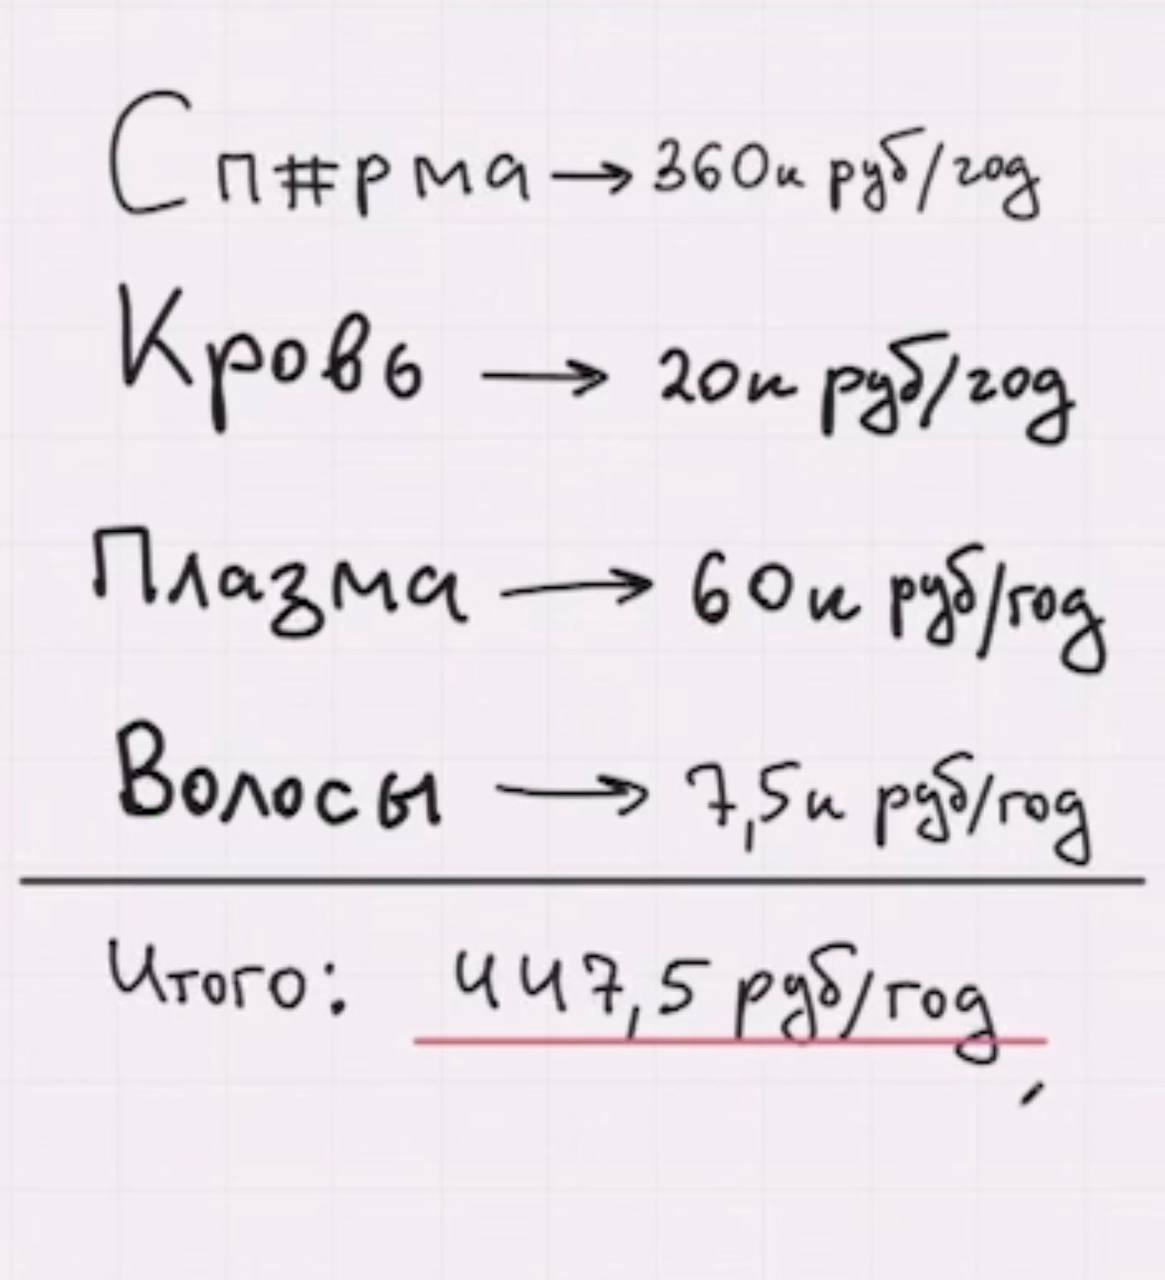 Сп#рма → 360к руб/год
Кровь → 20к руб/год
Плазма → 60к руб/год
Волосы → 7,5к руб/год
Итого: 447,5 руб/год